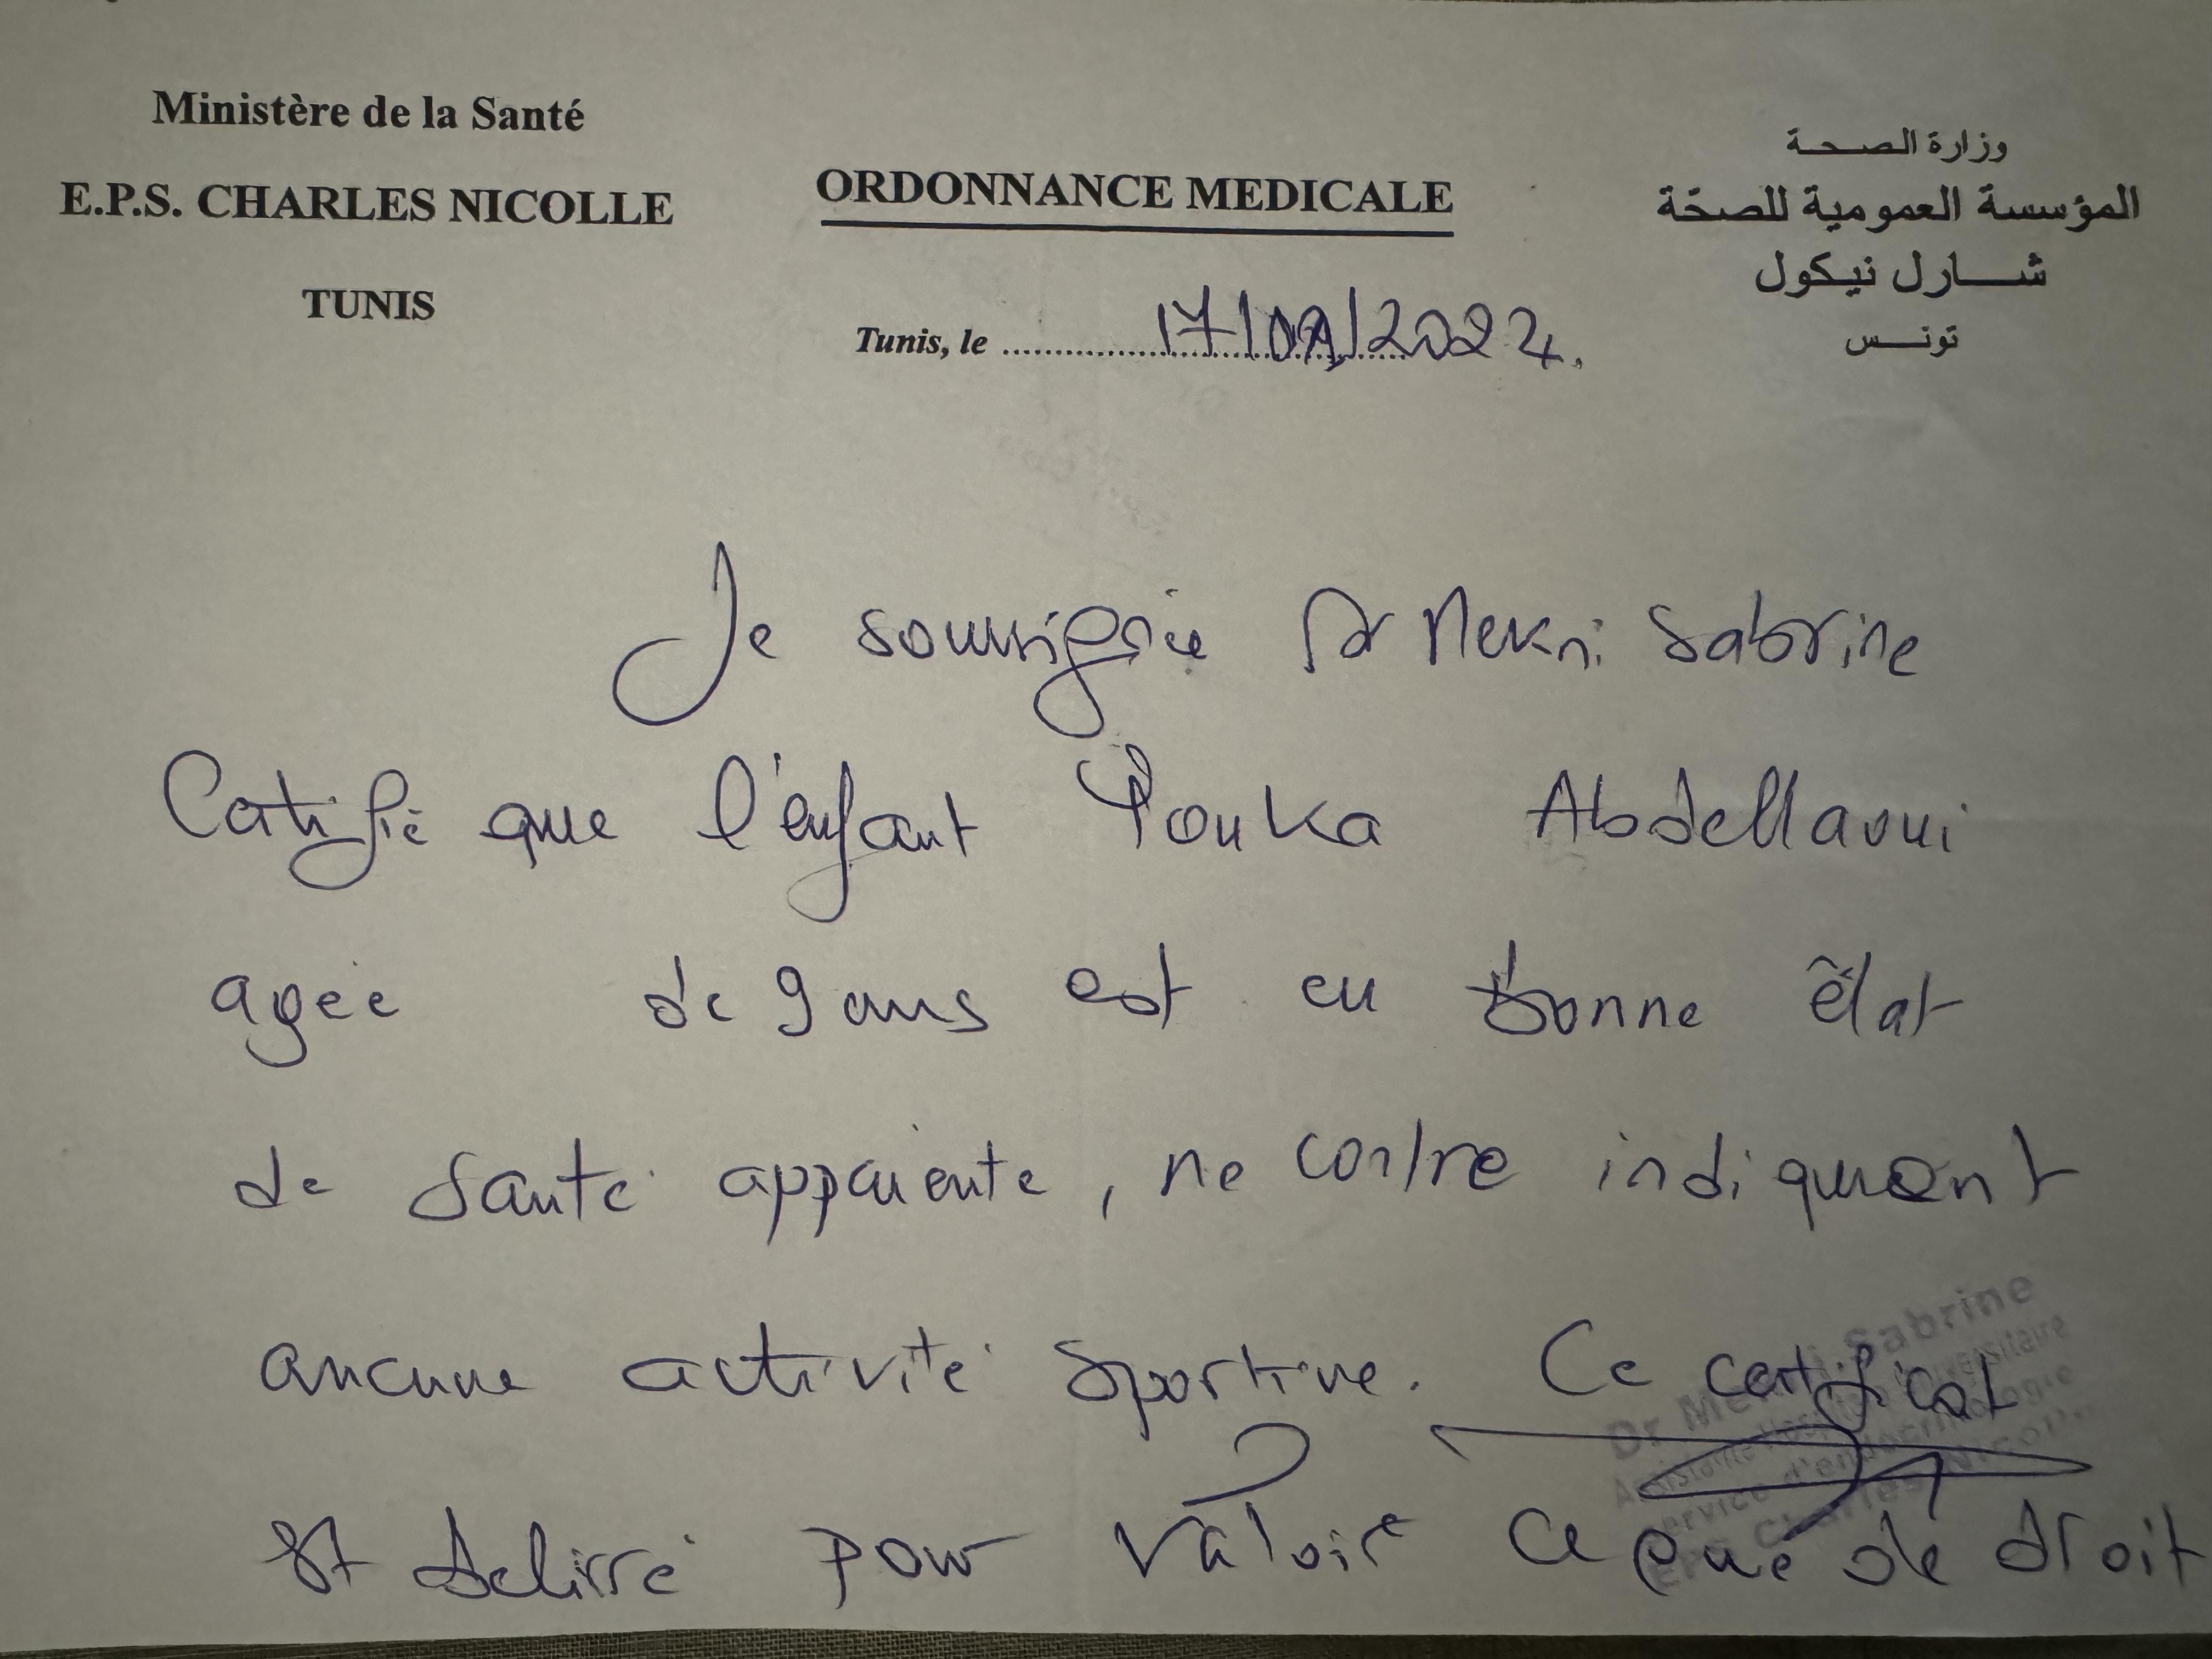 Ministère de la Santé
E.P.S. CHARLES NICOLLE
TUNIS
ORDONNANCE MEDICALE
Tunis, le 17/09/2024.
وزارة الصحة
المؤسسة العمومية للصحة
شارل نيكول
تونس
Je soussignée Dr Mekni Sabrine
Certifie que l'enfant Youka Abdellaoui
agée de 9 ans est en bonne état
de santé apparente, ne contre indiquant
aucune activité sportive. Ce certificat
est delivré pour valoir ce que de droit
Dr Mekni Sabrine
Assistante Hospitalo Universitaire
Service d'endocrinologie
EPS Charles Nicolle